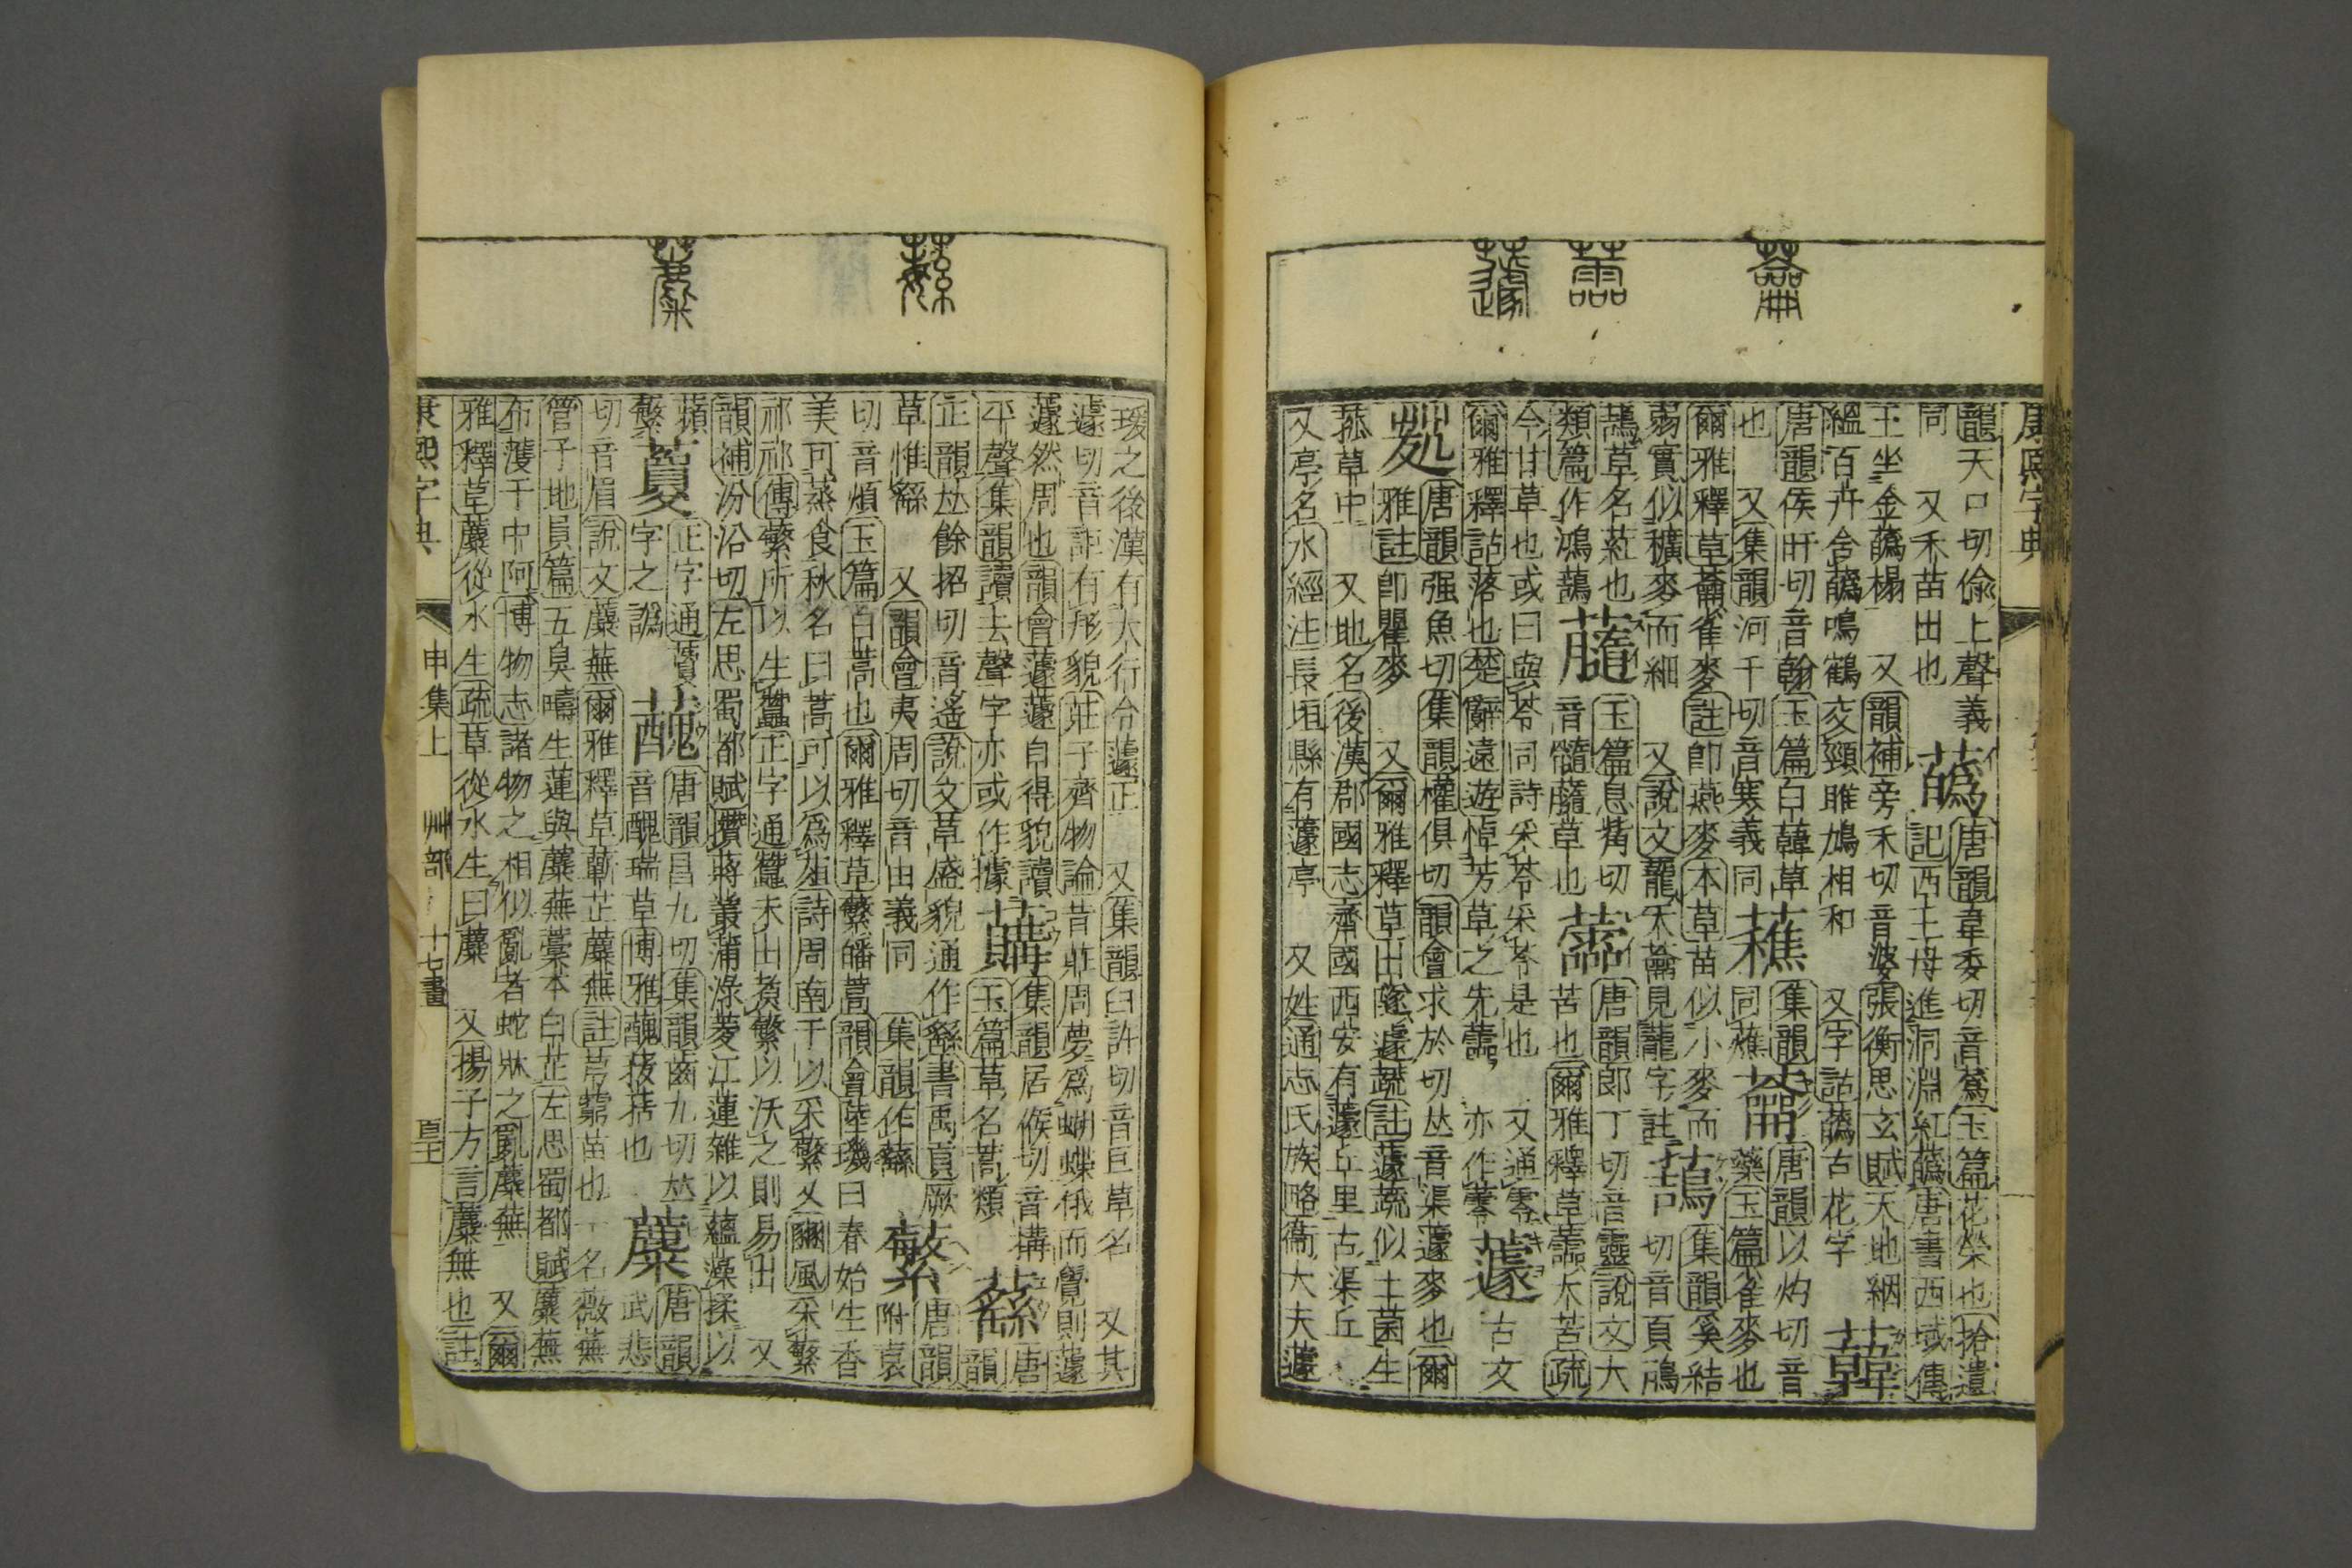 康熙字典
韻天口切偷上聲義
同　又禾苗出也
蘤
唐韻韋委切音蔿玉篇花榮也拾遺
記西王母進洞淵紅蘤唐書西域傳
王坐金蘤榻　又韻補旁禾切音婆張衡思玄賦天地絪
縕百卉含蘤鳴鶴交頸雎鳩相和　又字詁蘤古花字
韓
唐韻侯旰切音翰玉篇白韓草
也　又集韻河干切音寒義同
蘸
集韻
同
蘥
唐韻以灼切音
藥玉篇雀麥也
爾雅釋草蘥雀麥註卽燕麥本草苗似小麥而
弱實似穬麥而細　又說文龍天蘥見龍字註
集韻奚結
切音頁
草名葒也
類篇作鴻
玉篇息觜切
音髓草也
唐韻郎丁切音靈說文大
苦也爾雅釋草大苦疏
今甘草也或曰與苓同詩采苓采苓是也　又通零
爾雅釋詁落也楚辭遠遊悼芳草之先　亦作蕶
蘧
古文
唐韻强魚切集韻權俱切韻會求於切𠀤音渠蘧麥也爾
雅註卽瞿麥　又爾雅釋草出隧蘧蔬註蘧蔬似土菌生
菰草中　又地名後漢郡國志齊國西安有蘧丘里古渠丘
又亭名水經注長垣縣有蘧亭　又姓通志氏族略衞大夫蘧
瑗之後漢有大行令蘧正　又集韻臼許切音巨草名　又其
遽切音詎有形貌莊子齊物論昔莊周夢爲蝴蝶俄而覺則蘧
蘧然周也韻會蘧蘧自得貌讀
平聲集韻讀去聲字亦或作據
集韻居候切音搆
玉篇草名蒿類
唐
韻
正韻𠀤餘招切音遙說文草盛貌通作繇書禹貢厥
草惟繇　又韻會夷周切音由義同　集韻作蘨
蘩
唐韻
附袁
切音煩玉篇白蒿也爾雅釋草蘩皤蒿韻會陸璣曰春始生香
美可蒸食秋名曰蒿可以爲葅詩周南于以采蘩又豳風采蘩
祁祁傳蘩所以生蠶正字通蠶未出煑蘩以沃之則易出　又
韻補汾沿切左思蜀都賦攢蔣叢蒲淥菱江蓮雜以蘊藻揉以
蘋蘩
正字通蕒
字之譌
唐韻昌九切集韻齒九切𠀤
音醜瑞草博雅也
蘪
唐韻
武悲
切音眉說文蘪蕪爾雅釋草蘄茝蘪蕪註芎藭苗也一名薇蕪
管子地員篇五臭疇生蓮與蘪蕪藁本白芷左思蜀都賦蘪蕪
布濩于中阿博物志諸物之相似亂者蛇牀之亂蘪蕪　又爾
雅釋草蘪從水生疏草從水生曰蘪　又揚子方言蘪無也註
康熙字典
申集上
艸部
十七畫